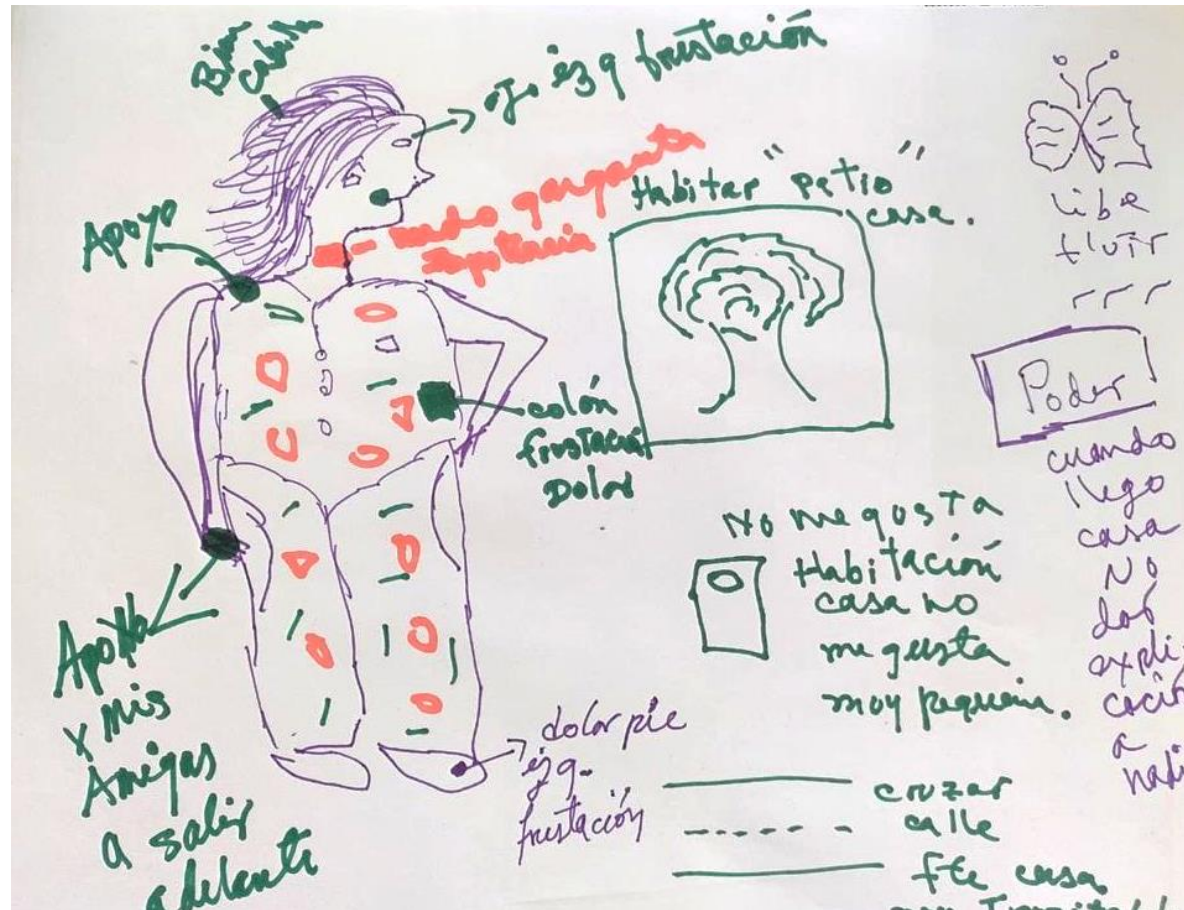 Bien
cabello
ojo izq frustación
nudo garganta
Impotencia
Apoyo
Habitar "patio"
casa.
libe
fluir
Poder!
cuando
llego
casa
No
dar
expli-
cación
a
nadi
colón
frustación
Dolor
No me gusta
Habitación
casa no
me gusta
muy pequeñ.
Apoyo
x mis
Amigas
a salir
adelante
dolor pie
izq.
frustación
cruzar
calle
fte casa